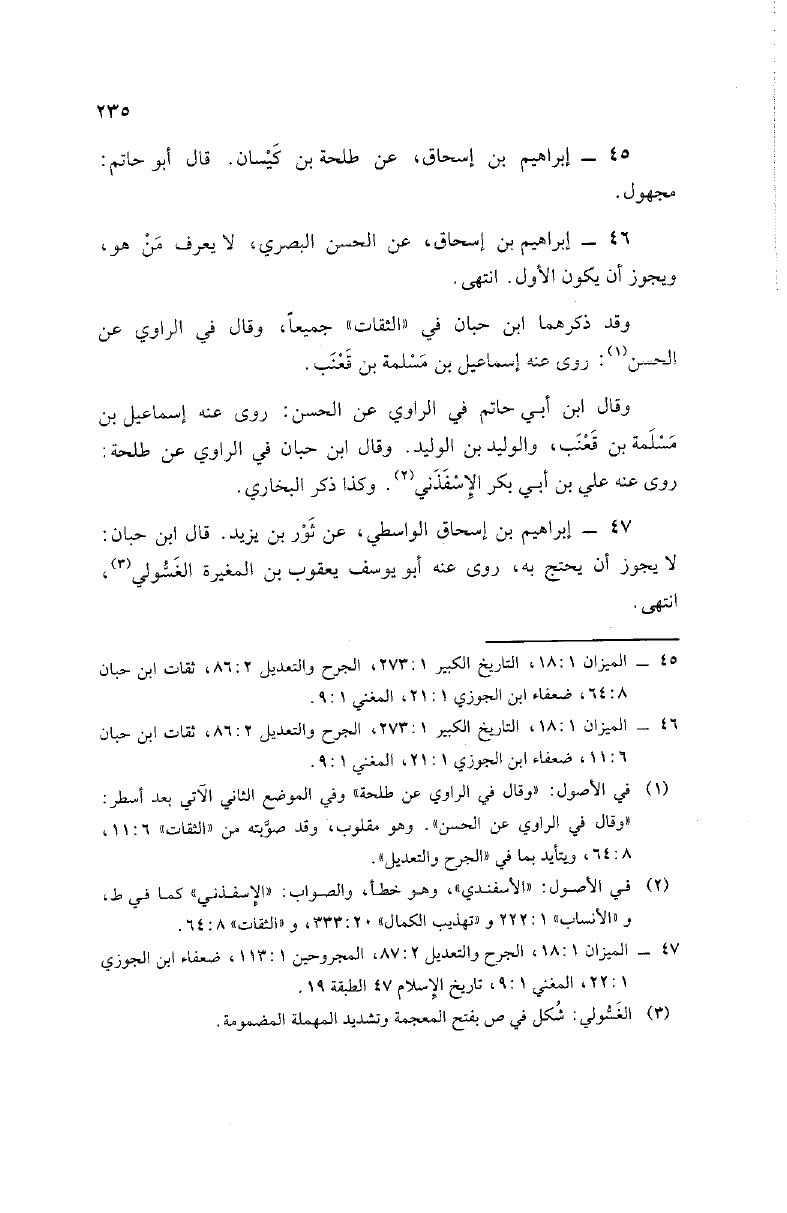 ٢٣٥
٤٥ ــ إبراهيم بن إسحاق، عن طلحة بن كَيْسان. قال أبو حاتم:
مجهول.
٤٦ ــ إبراهيم بن إسحاق، عن الحسن البصري، لا يعرف مَنْ هو،
ويجوز أن يكون الأول. انتهى.
وقد ذكرهما ابن حبان في «الثقات» جميعاً، وقال في الراوي عن
الحسن(١): روى عنه إسماعيل بن مَسْلمة بن قَعْنَب.
وقال ابن أبي حاتم في الراوي عن الحسن: روى عنه إسماعيل بن
مَسْلَمة بن قَعْنَب، والوليد بن الوليد. وقال ابن حبان في الراوي عن طلحة:
روى عنه علي بن أبي بكر الإسْفَذَني(٢). وكذا ذكر البخاري.
٤٧ ــ إبراهيم بن إسحاق الواسطي، عن ثَوْر بن يزيد. قال ابن حبان:
لا يجوز أن يحتج به، روى عنه أبو يوسف يعقوب بن المغيرة الغَسُّولي(٣)،
انتهى.
٤٥ ــ الميزان ١:١٨، التاريخ الكبير ١:٢٧٣، الجرح والتعديل ٢:٨٦، ثقات ابن حبان
٨:٦٤، ضعفاء ابن الجوزي ١:٢١، المغني ١:٩.
٤٦ ــ الميزان ١:١٨، التاريخ الكبير ١:٢٧٣، الجرح والتعديل ٢:٨٦، ثقات ابن حبان
٦:١١، ضعفاء ابن الجوزي ١:٢١، المغني ١:٩.
(١) في الأصول: «وقال في الراوي عن طلحة» وفي الموضع الثاني الآتي بعد أسطر:
«وقال في الراوي عن الحسن». وهو مقلوب، وقد صوَّبته من «الثقات» ٦:١١،
٨:٦٤، ويتأيد بما في «الجرح والتعديل».
(٢) في الأصول: «الأسفندي»، وهو خطأ، والصواب: «الإسفذني» كما في ط،
و «الأنساب» ١:٢٢٢ و «تهذيب الكمال» ٢٠:٣٣٣، و «الثقات» ٨:٦٤.
٤٧ ــ الميزان ١:١٨، الجرح والتعديل ٢:٨٧، المجروحين ١:١١٣، ضعفاء ابن الجوزي
١:٢٢، المغني ١:٩، تاريخ الإسلام ٤٧ الطبقة ١٩.
(٣) الغَسُّولي: شُكل في ص بفتح المعجمة وتشديد المهملة المضمومة.